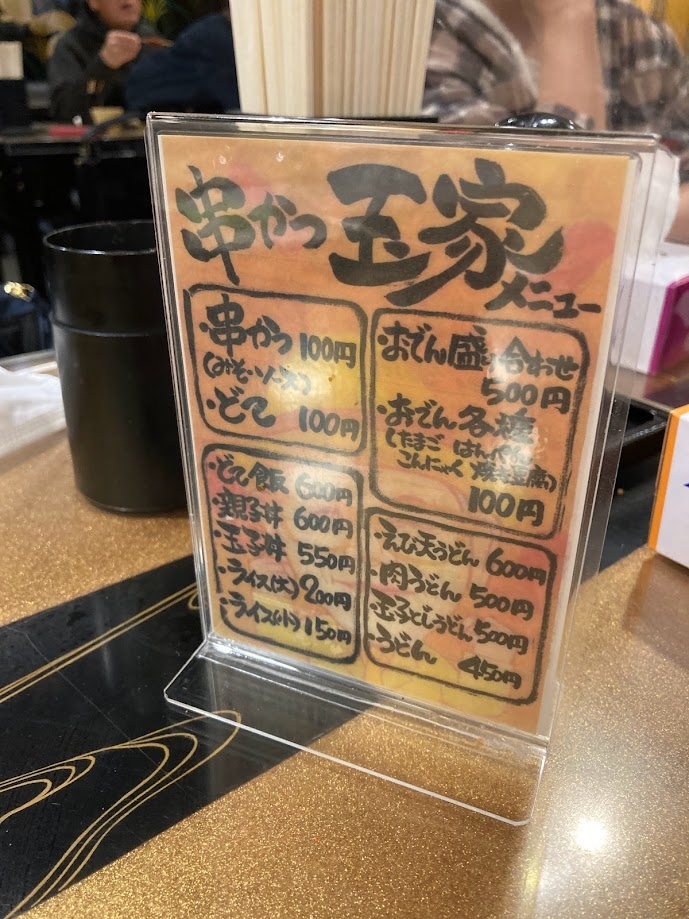 串かつ 玉家
メニュー
・串かつ 100円
(みそ・ソース)
・どて 100円
・おでん盛り合わせ
500円
・おでん各種
(たまご はんぺん
こんにゃく 焼き豆腐)
100円
・どて飯 600円
・親子丼 600円
・玉子丼 550円
・ライス(大) 200円
・ライス(小) 150円
・えび天うどん 600円
・肉うどん 500円
・玉子とじうどん 500円
・うどん 450円